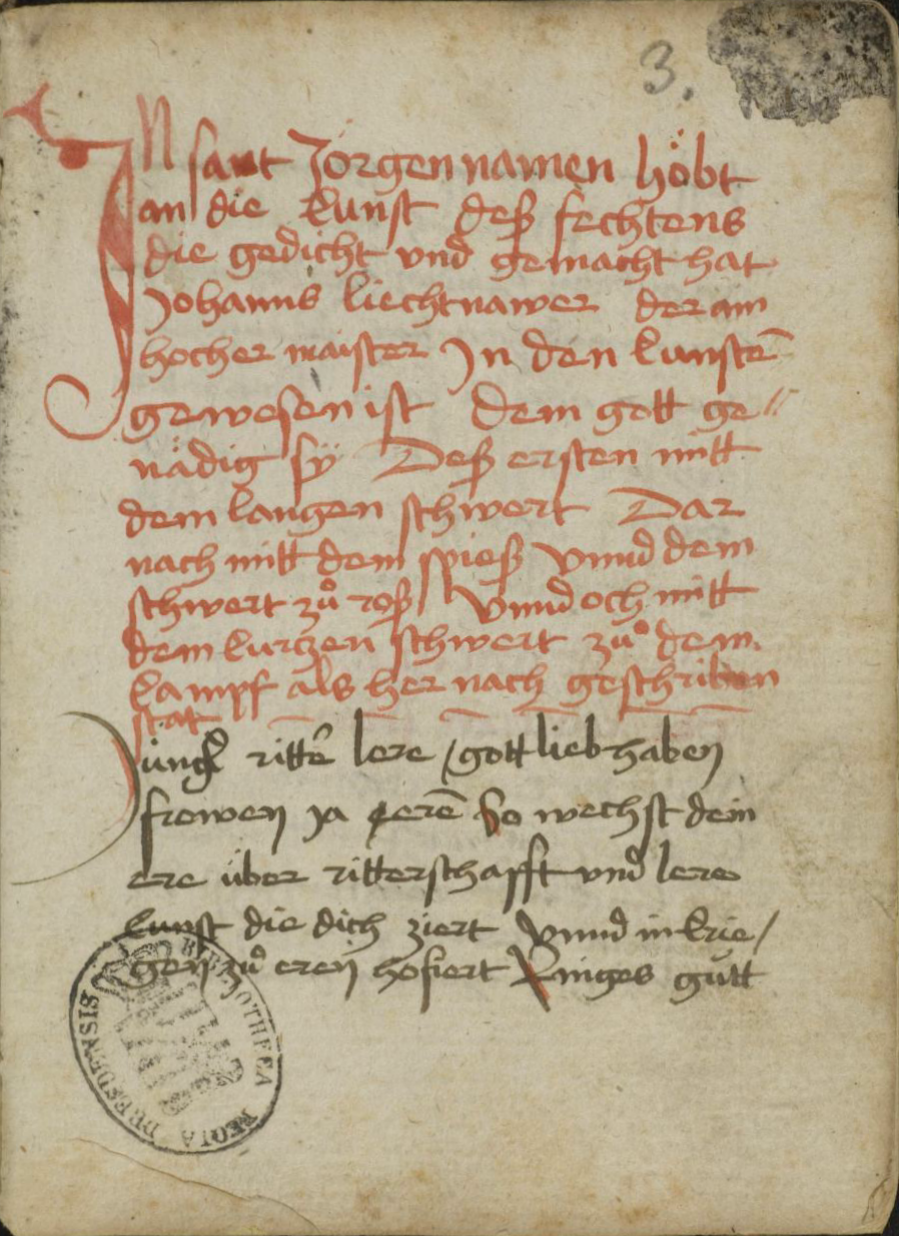 3.
JN sant Jörgen namen höbt
an die kunst deß fechtens
die gedicht vnd gemacht hat
Johanns liechtnawer der ain
hocher maister Jn den kunstē
gewesen ist dem gott ge//
nädig sÿ Deß ersten mitt
dem langen schwert Dar
nach mitt dem spieß vnnd dem
schwert zů roß vnnd och mitt
dem kurtzen schwert zů dem
kampf als her nach geschriben
stät
Jungr rittr lere / gott lieb haben
frowen ja erē So wechst dein
ere über ritterschafft vnd lere
kunst die dich ziert Vnnd in krie/
gen zů eren hofiert Ringes gůtt
BIBLIOTHECA REGIA DRESDENSIS